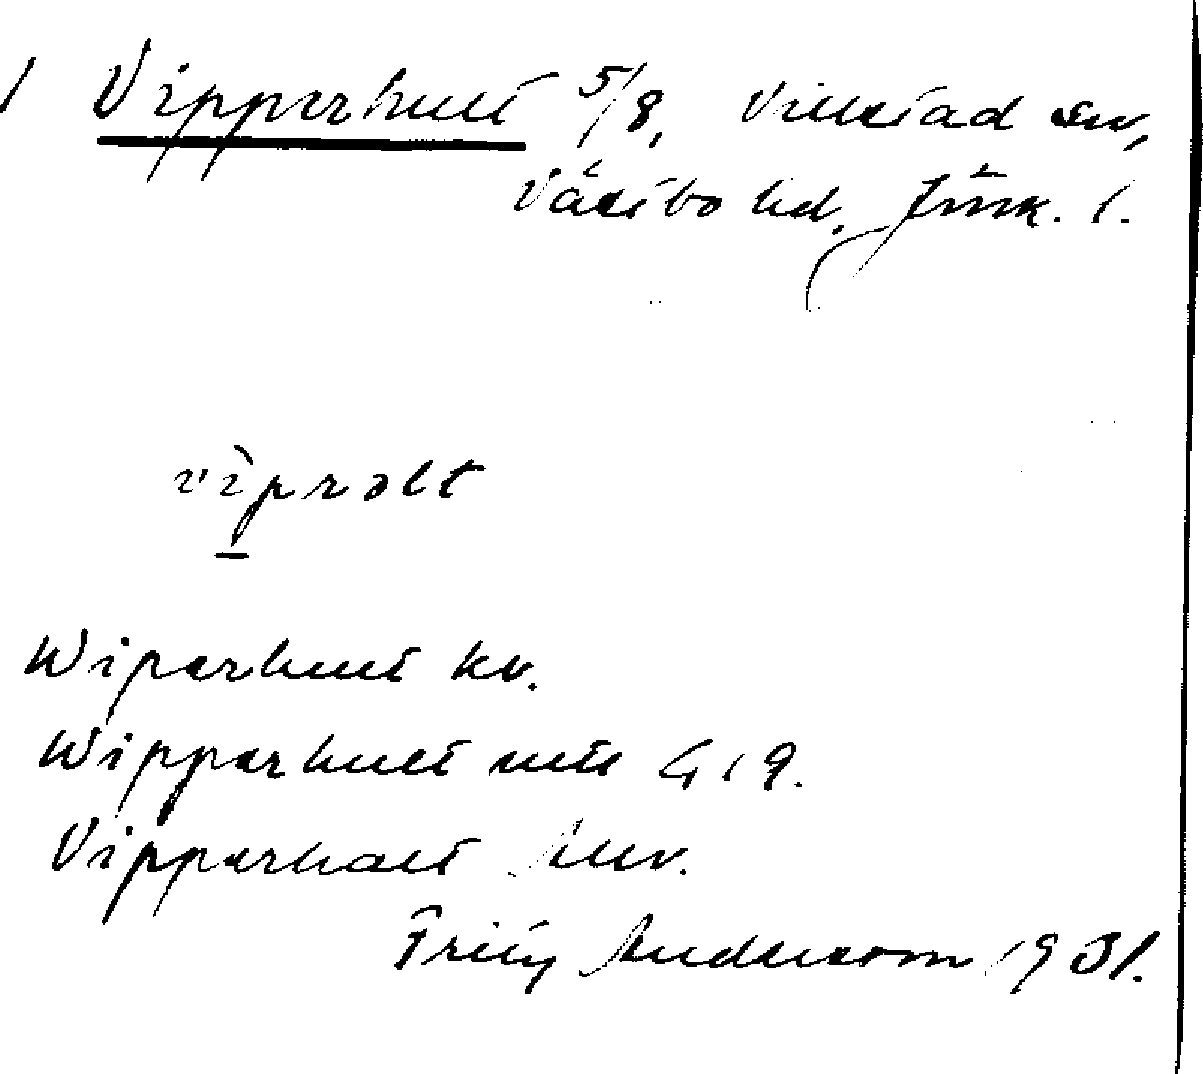 1 Vipperhult 5/8, Villstad sn,
Västbo hd, Jönk. l.
vìprəlt
Wiparhult kv.
Wipparhult mtl G 19.
Vipparhalt
Fritz Andersson 1931.